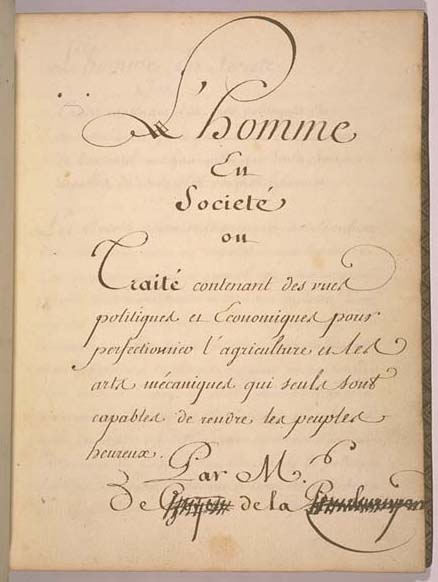 L'homme
En
Societé
ou
Traité contenant des vues
politiques et Economiques pour
perfectionner l'agriculture et les
arts mécaniques qui seuls sont
capables de rendre les peuples
heureux.
Par M.r
De de la